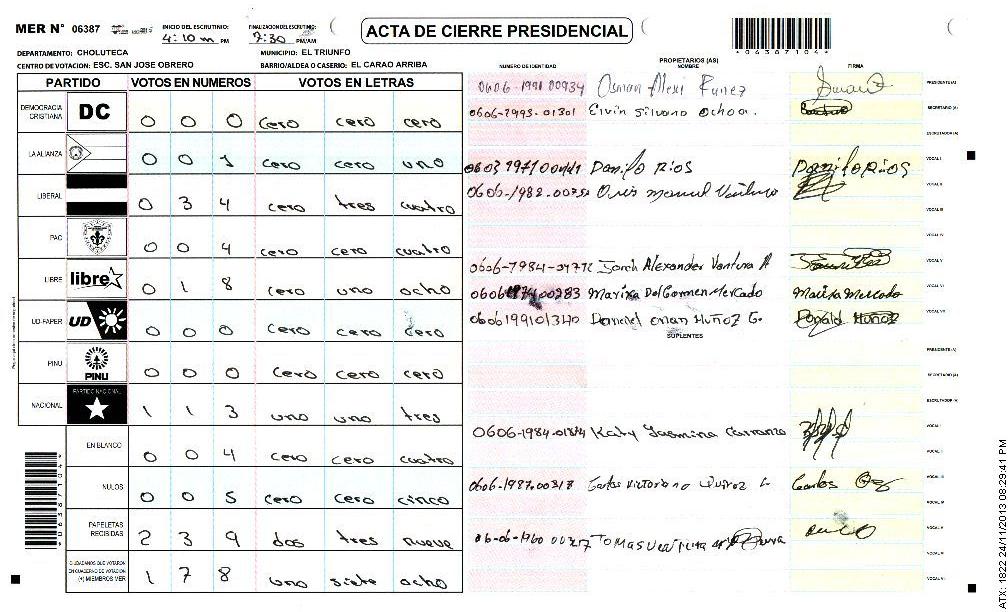 MER N° 06387 INICIO DEL ESCRUTINIO: 4:10 m PM FINALIZACION DEL ESCRUTINIO: 7:30 PM/AM ACTA DE CIERRE PRESIDENCIAL
DEPARTAMENTO: CHOLUTECA MUNICIPIO: EL TRIUNFO
CENTRO DE VOTACION: ESC. SAN JOSE OBRERO BARRIO/ALDEA O CASERIO: EL CARAO ARRIBA
*06387104*
NUMERO DE IDENTIDAD PROPIETARIOS (AS) NOMBRE FIRMA
PARTIDO VOTOS EN NUMEROS VOTOS EN LETRAS
DEMOCRACIA CRISTIANA DC 0 0 0 cero cero cero
LA ALIANZA 0 0 1 cero cero uno
LIBERAL 0 3 4 cero tres cuatro
PAC 0 0 4 cero cero cuatro
LIBRE libre 0 1 8 cero uno ocho
UD-FAPER UD 0 0 0 cero cero cero
PINU PINU 0 0 0 cero cero cero
NACIONAL PARTIDO NACIONAL 1 1 3 uno uno tres
EN BLANCO 0 0 4 cero cero cuatro
NULOS 0 0 5 cero cero cinco
PAPELETAS RECIBIDAS 2 3 9 dos tres nueve
CIUDADANOS QUE VOTARON EN CUADERNO DE VOTACION (+) MIEMBROS MER 1 7 8 uno siete ocho
0606-1991 00934 Osman Alexi Funez PRESIDENTE (A)
0606-1993-01301 Elvin Silvano Ochoa. SECRETARIO (A)
ESCRUTADOR (A)
Danilo Rios Danilo Rios VOCAL I
0606-1982-0075 VOCAL II
VOCAL III
VOCAL IV
Alexander Ventura A VOCAL V
00283 Marixa Del Carmen Mercado Marixa Mercado VOCAL VI
0606199101340 Muñoz G. Donald Muñoz VOCAL VII
SUPLENTES
PRESIDENTE (A)
SECRETARIO (A)
ESCRUTADOR (A)
0606-1984-01874 Katy Yasmina Carranza
0606-1987-00318 Carlos Victoriano Quiroz G. Carlos
06-06-1960 Tomas
ATX: 1822 24/11/2013 08:29:41 PM